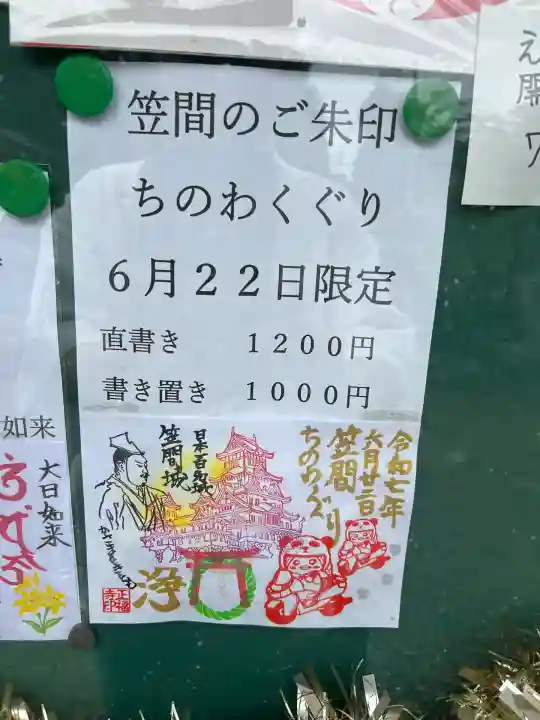 笠間のご朱印
ちのわくぐり
6月22日限定
直書き 1200円
書き置き 1000円
令和七年
六月廿二日
笠間
ちのわくぐり
日本百名城
笠間城
浄
如来
大日如来
え
開